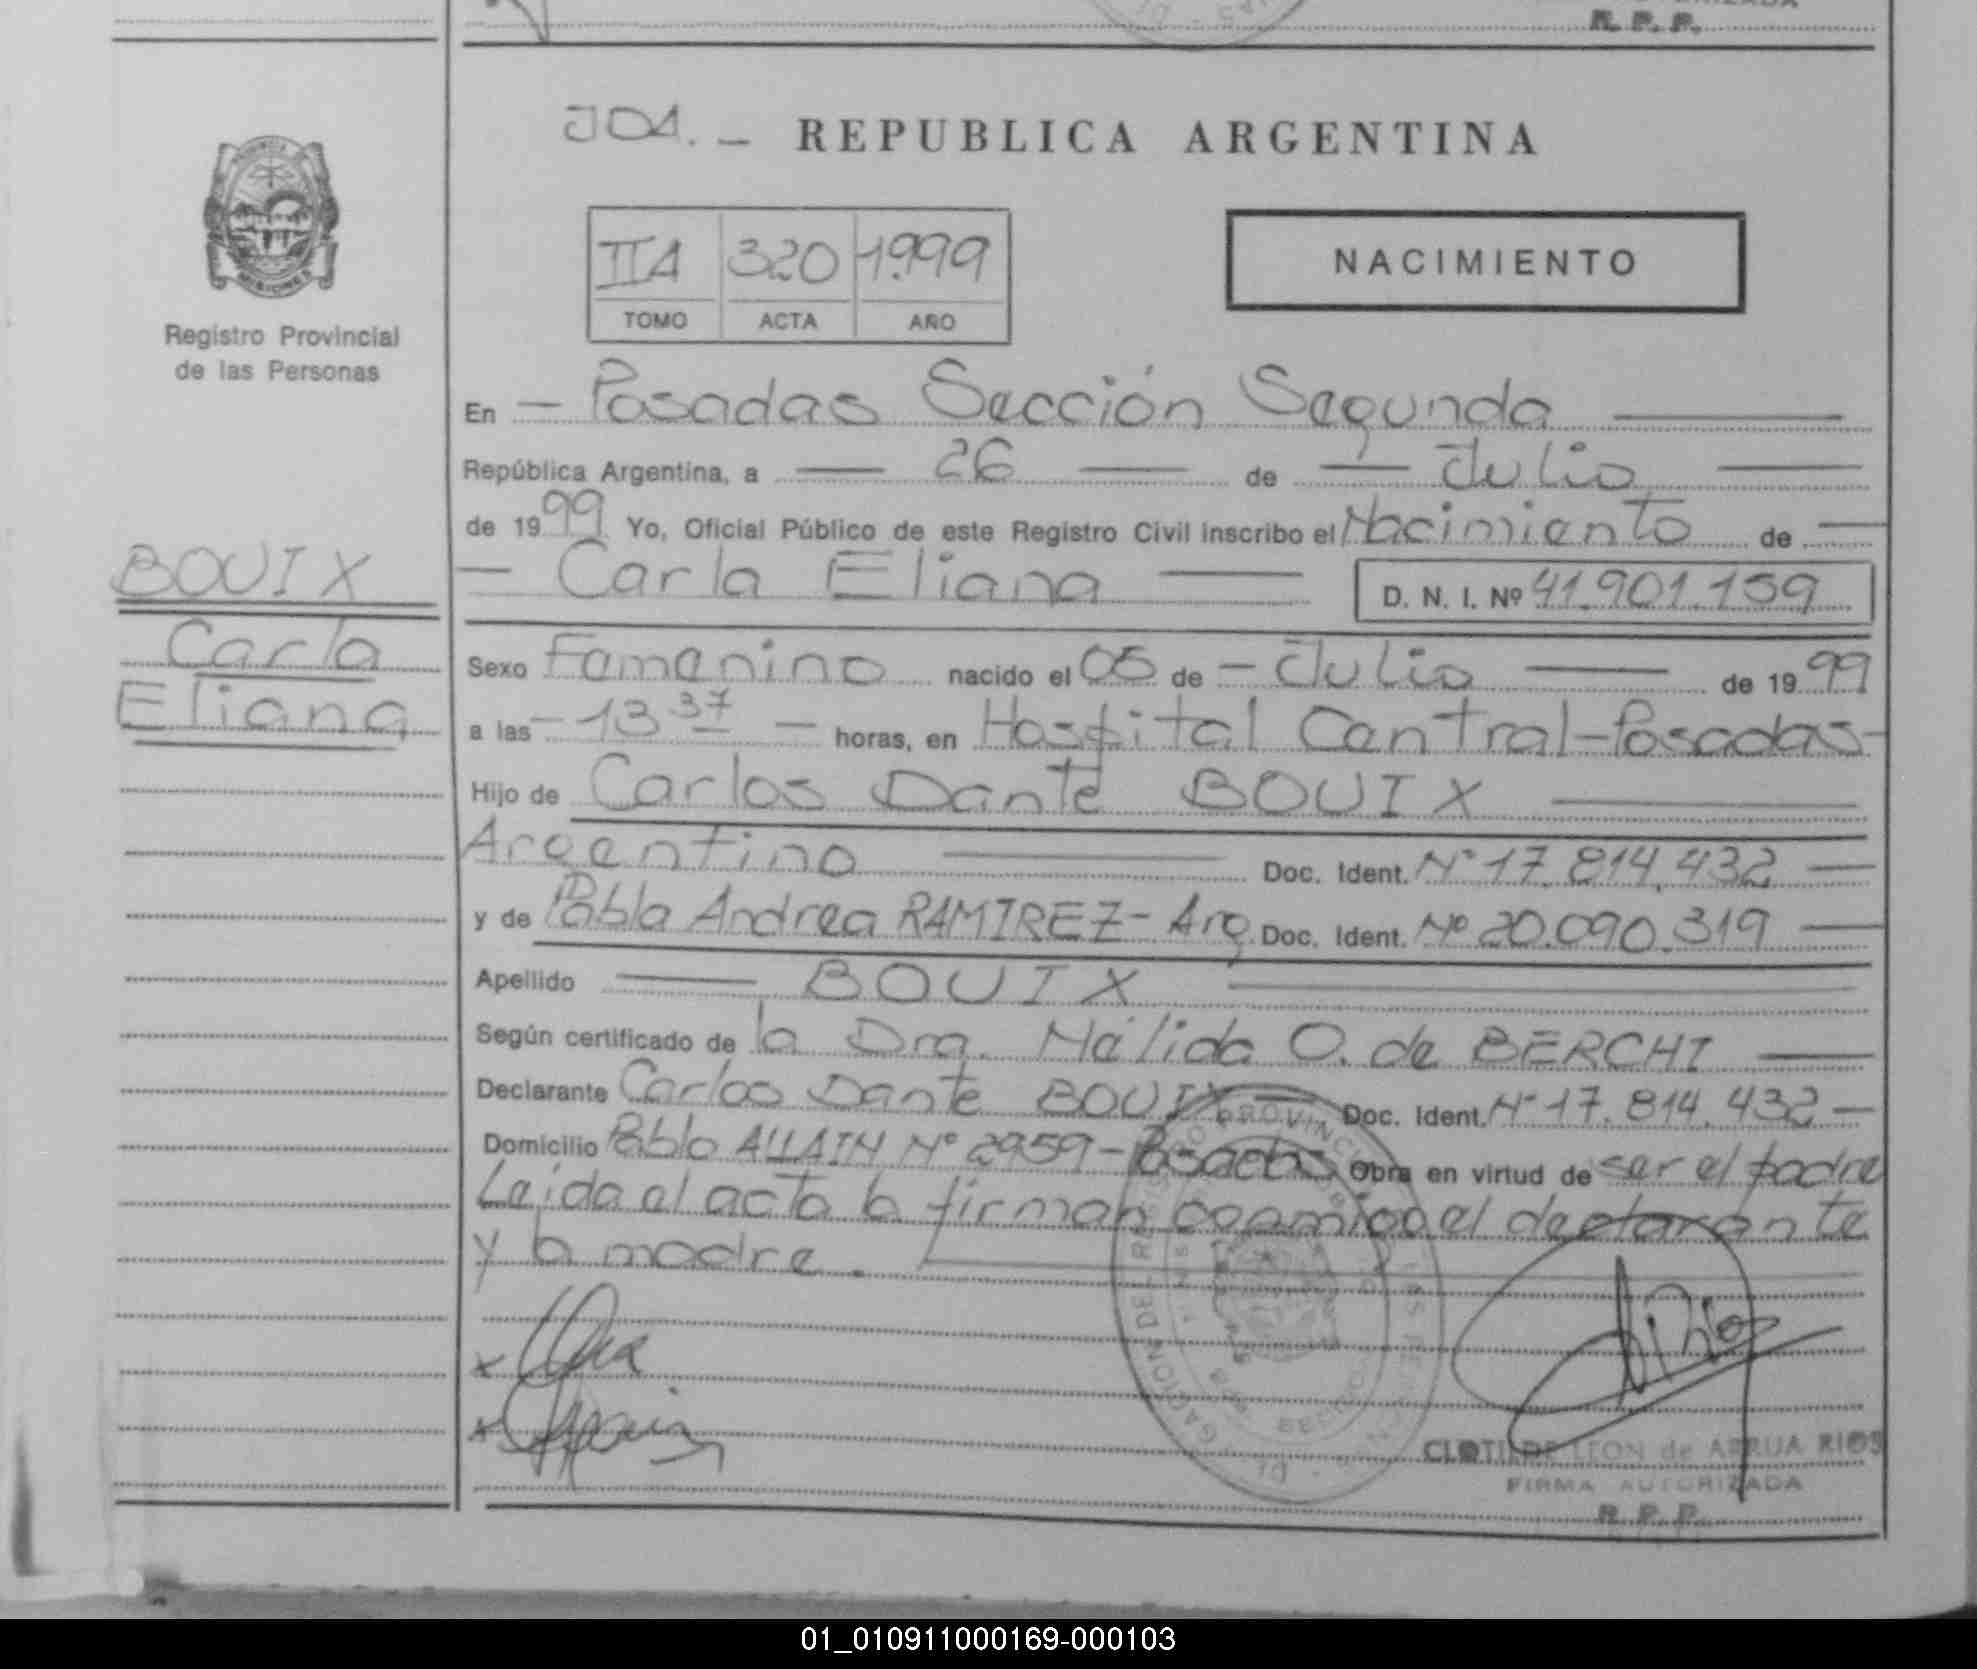 R. P. P.
101. - REPUBLICA ARGENTINA
IIA 320 1999
TOMO ACTA AÑO
NACIMIENTO
MISIONES
Registro Provincial
de las Personas
En - Posadas Sección Segunda
República Argentina, a 26 de Julio
de 1999 Yo, Oficial Público de este Registro Civil inscribo el Nacimiento de
BOUIX
- Carla Eliana D. N. I. Nº 41.901.159
Carla
Eliana
Sexo Femenino nacido el 05 de - Julio de 1999
a las - 13 37 - horas, en Hospital Central - Posadas -
Hijo de Carlos Dante BOUIX
Argentino Doc. Ident. Nº 17.814.432
y de Pabla Andrea RAMIREZ - Arg. Doc. Ident. Nº 20.090.319
Apellido BOUIX
Según certificado de la Dra. Nélida O. de BERCHI
Declarante Carlos Dante BOUIX Doc. Ident. Nº 17.814.432
Domicilio Pablo ALLAIN Nº 2959 - Posadas Obra en virtud de ser el padre
Leída el acta la firman conmigo el declarante
y la madre.
CLOTILDE LEON de ARRUA RIOS
FIRMA AUTORIZADA
R. P. P.
01_010911000169-000103